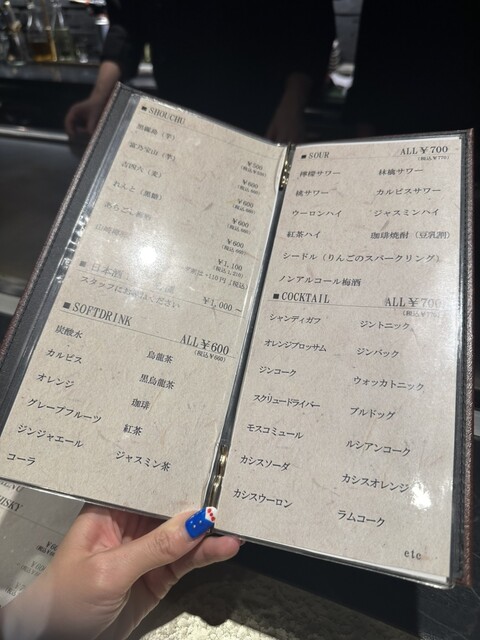 ■ SHOUCHU
黒霧島(芋)
¥500
富乃宝山(芋)
¥600
吉四六(麦)
¥600
れんと(黒糖)
¥600
あらごし
¥600
山崎
¥1,100
■ 日本酒
スタッフにお
ください
¥1,000~
■ SOFTDRINK
ALL ¥600
(税込¥660)
炭酸水
烏龍茶
カルピス
黒烏龍茶
オレンジ
珈琲
グレープフルーツ
紅茶
ジンジャエール
ジャスミン茶
コーラ
■ SOUR
ALL ¥700
(税込¥770)
檸檬サワー
林檎サワー
桃サワー
カルピスサワー
ウーロンハイ
ジャスミンハイ
紅茶ハイ
珈琲焼酎(豆乳割)
シードル(りんごのスパークリング)
ノンアルコール梅酒
■ COCKTAIL
ALL ¥700
シャンディガフ
ジントニック
オレンジブロッサム
ジンバック
ジンコーク
ウォッカトニック
スクリュードライバー
ブルドッグ
モスコミュール
ルシアンコーク
カシスソーダ
カシスオレンジ
カシスウーロン
ラムコーク
etc